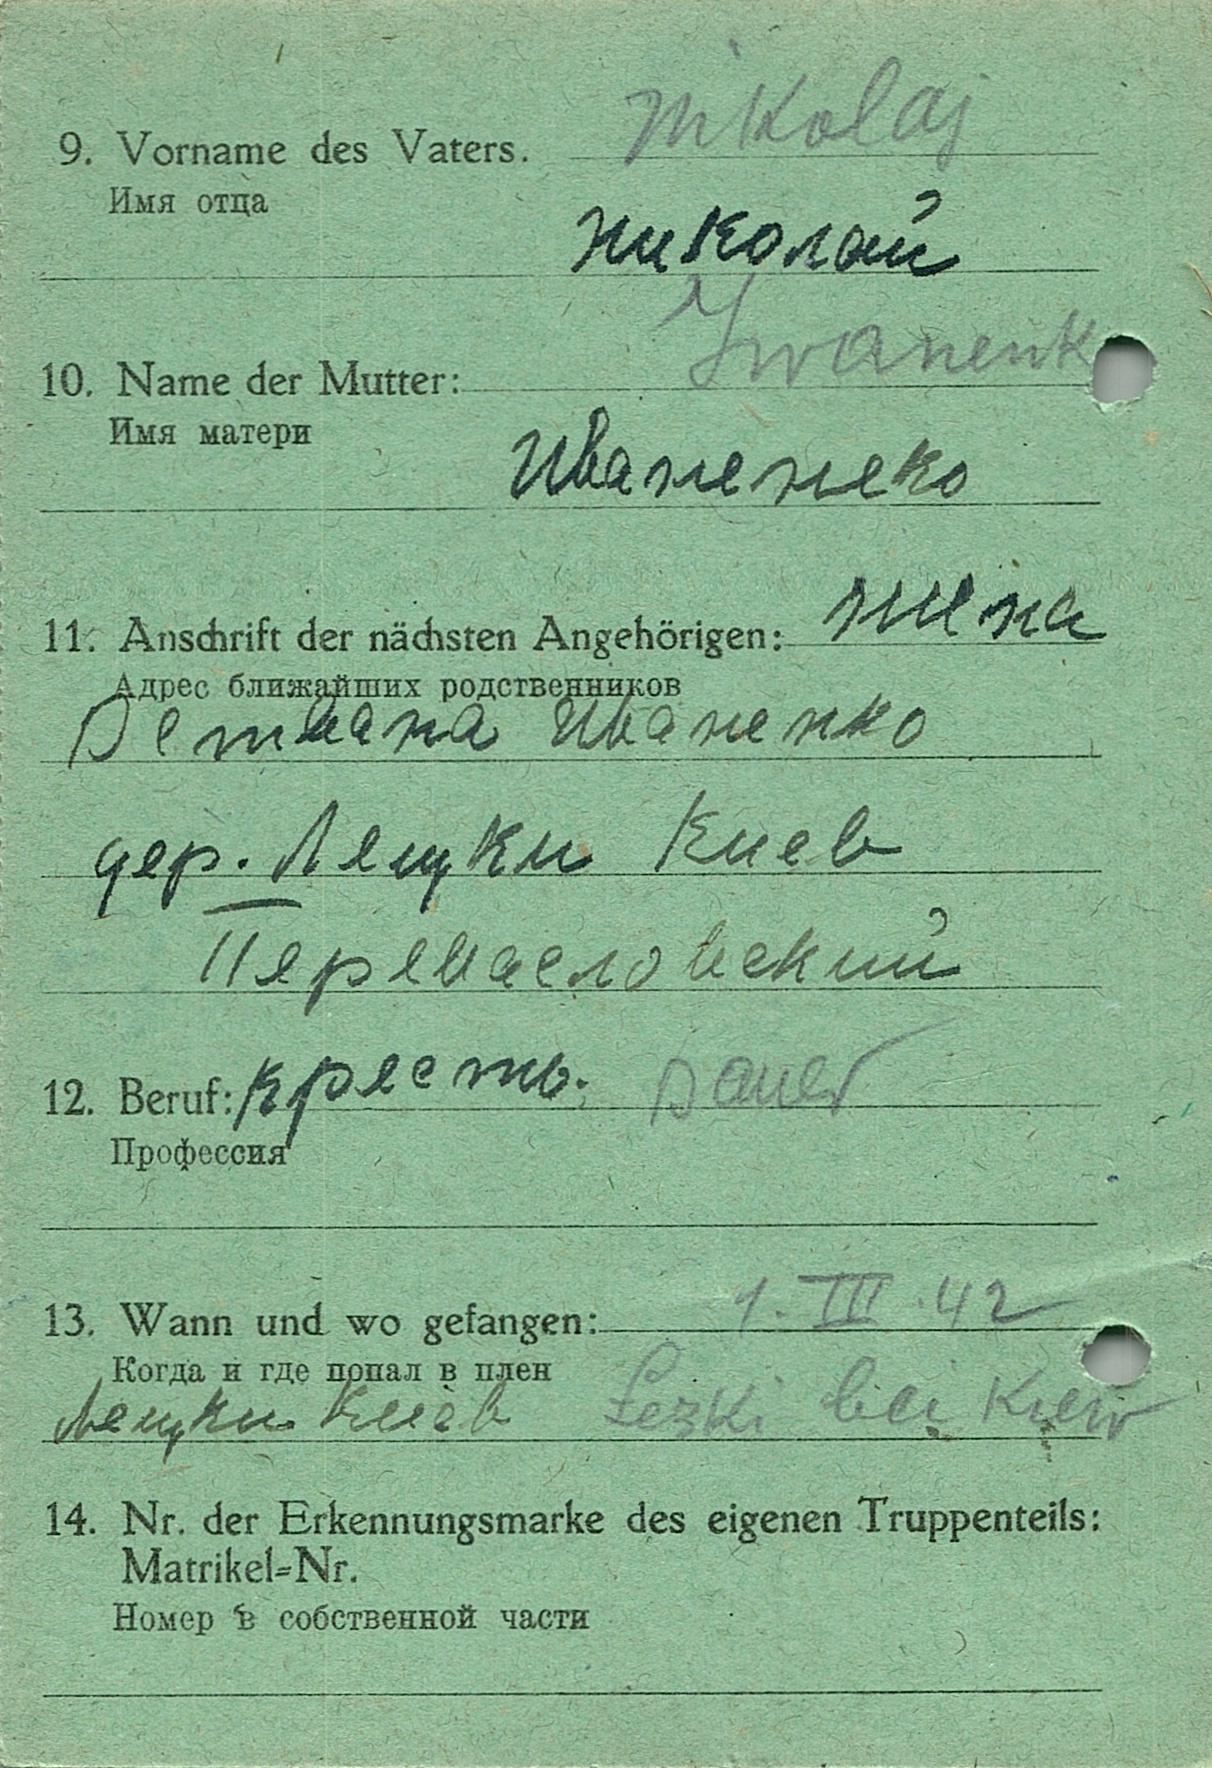 Nikolaj
9. Vorname des Vaters.
Имя отца
Николай
Iwanenk
10. Name der Mutter:
Имя матери
Иваненеко
11. Anschrift der nächsten Angehörigen:
Адрес ближайших родственников
Иваненко
дер. Лецки Киев
12. Beruf: кресть. Bauer
Профессия
13. Wann und wo gefangen: 1. III. 42
Когда и где попал в плен
Лецки Киев Lezki bei Kiew
14. Nr. der Erkennungsmarke des eigenen Truppenteils:
Matrikel=Nr.
Номер в собственной части